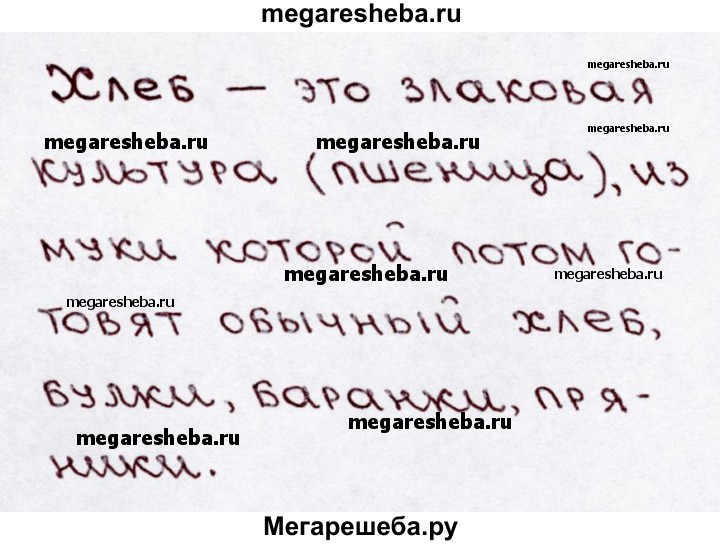 megaresheba.ru
Хлеб — это злаковая
megaresheba.ru
megaresheba.ru
megaresheba.ru
megaresheba.ru
культура (пшеница), из
муки которой потом го-
megaresheba.ru
megaresheba.ru
megaresheba.ru
товят обычный хлеб,
булки, баранки, пря-
megaresheba.ru
megaresheba.ru
ники.
Мегарешеба.ру